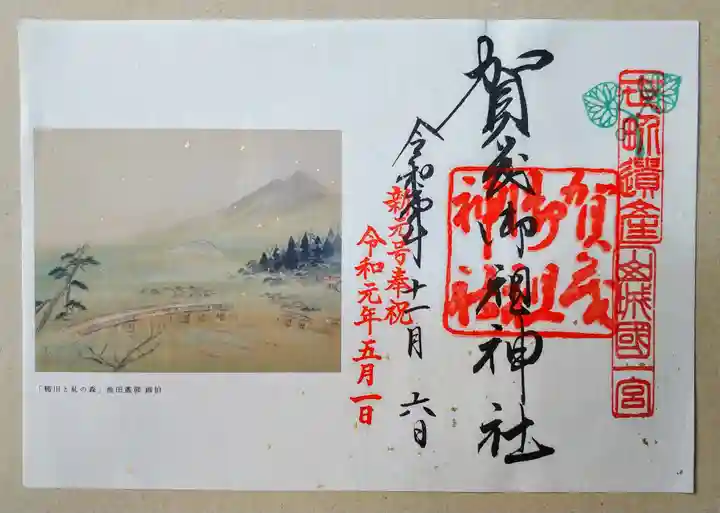 世界遺産 山城國一宮
賀茂御祖神社
賀茂
御祖
神社
新元号奉祝
令和元年五月一日
令和元年十一月六日